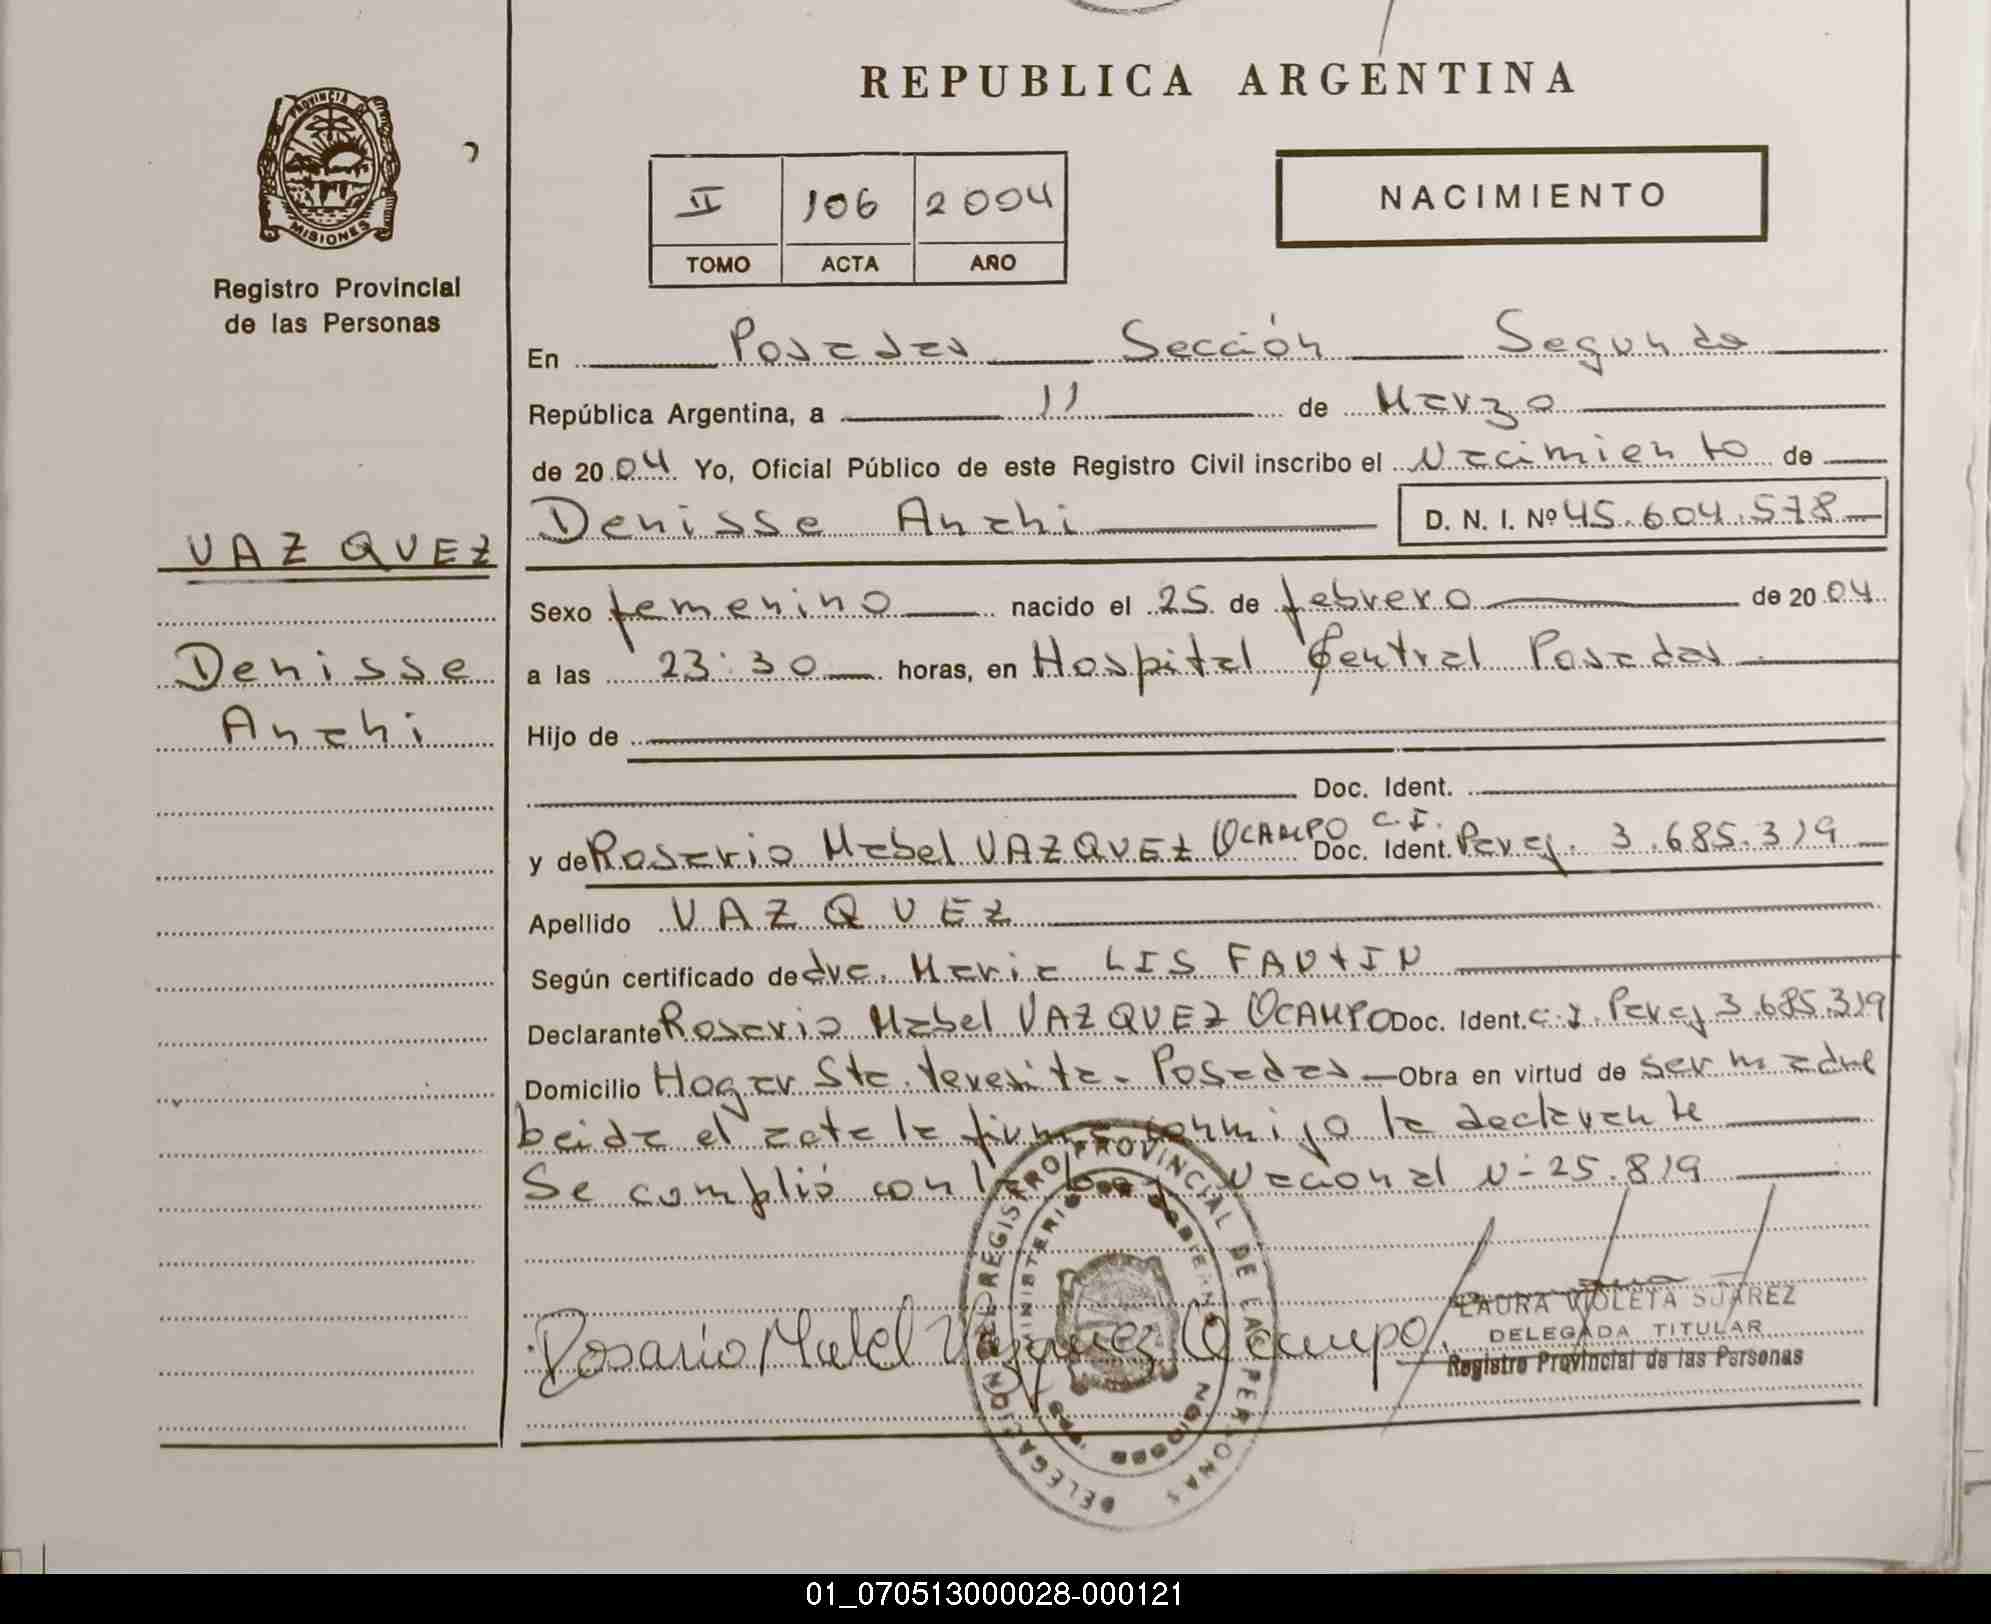 REPUBLICA ARGENTINA
PROVINCIA DE
MISIONES
Registro Provincial
de las Personas
II 106 2004
TOMO ACTA AÑO
NACIMIENTO
En Posadas Sección Segunda
República Argentina, a 11 de Marzo
de 2004 Yo, Oficial Público de este Registro Civil inscribo el Nacimiento de
Denisse Anahi D. N. I. Nº 45.604.578
VAZQUEZ
Denisse
Anahi
Sexo femenino nacido el 25 de febrero de 2004
a las 23:30 horas, en Hospital Central Posadas
Hijo de
Doc. Ident.
y de Rosario Mabel VAZQUEZ OCAMPO Doc. Ident. C.I. Parag. 3.685.319
Apellido VAZQUEZ
Según certificado de dra. Maria LIS FANTIN
Declarante Rosario Mabel VAZQUEZ OCAMPO Doc. Ident. C.I. Parag 3.685.319
Domicilio Hogar Sta. teresita - Posadas Obra en virtud de ser madre
Leida el acta la firma conmigo la declarante
Se cumplió con la Ley Nacional Nº 25.819
Rosario Mabel Vazquez Ocampo
LAURA VIOLETA SUAREZ
DELEGADA TITULAR
Registro Provincial de las Personas
DELEGACION DEL REGISTRO PROVINCIAL DE LAS PERSONAS
MINISTERIO DE GOBIERNO
01_070513000028-000121